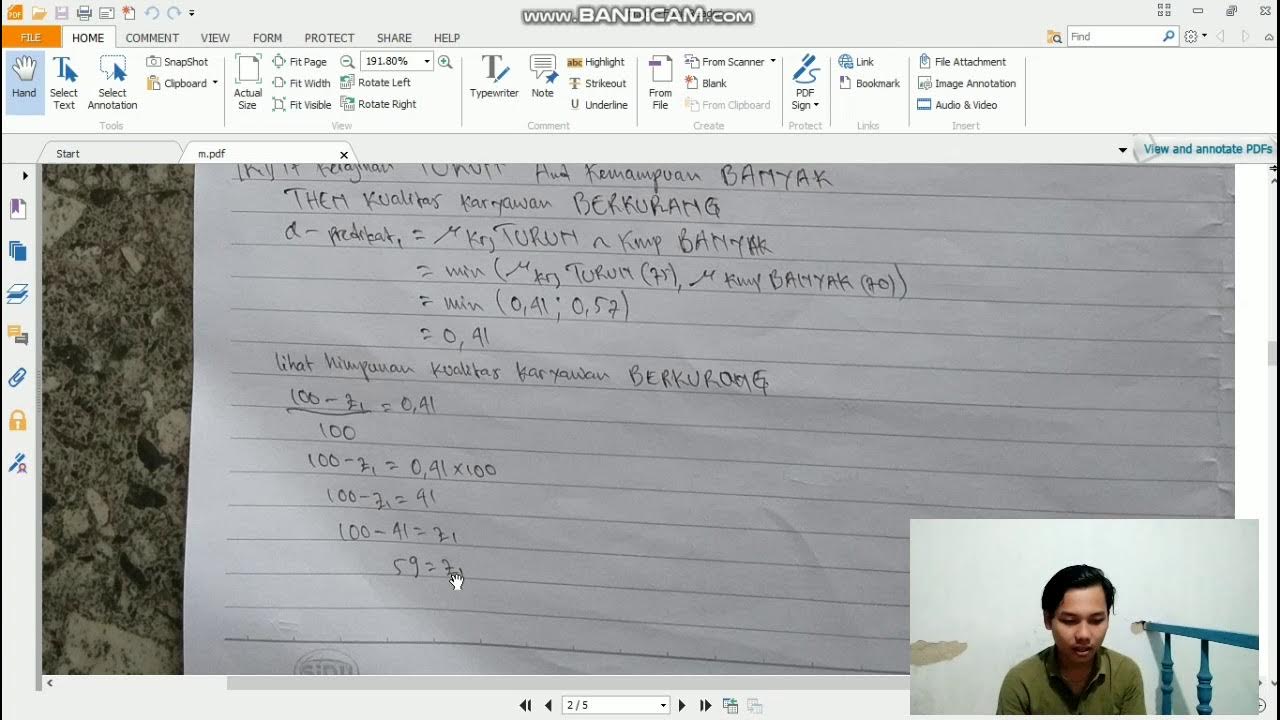 www.BANDICAM.com
FILE HOME COMMENT VIEW FORM PROTECT SHARE HELP
Find
Hand
Select Text
Select Annotation
SnapShot
Clipboard
Tools
Actual Size
Fit Page
Fit Width
Fit Visible
191.80%
Rotate Left
Rotate Right
View
Typewriter
Note
Highlight
Strikeout
Underline
Comment
From File
From Scanner
Blank
From Clipboard
Create
PDF Sign
Protect
Link
Bookmark
Links
File Attachment
Image Annotation
Audio & Video
Insert
Start
m.pdf
View and annotate PDFs
[R1] If Kerajinan TURUN And Kemampuan BANYAK
THEN Kualitas Karyawan BERKURANG
α - predikat₁ = μ Krj TURUN ∩ Kmp BANYAK
= min (μ Krj TURUN (75), μ Kmp BANYAK (70))
= min (0,41; 0,57)
= 0,41
lihat himpunan kualitas karyawan BERKURANG
100 - z₁ = 0,41
100
100 - z₁ = 0,41 x 100
100 - z₁ = 41
100 - 41 = z₁
59 = z₁
SIDU
2 / 5